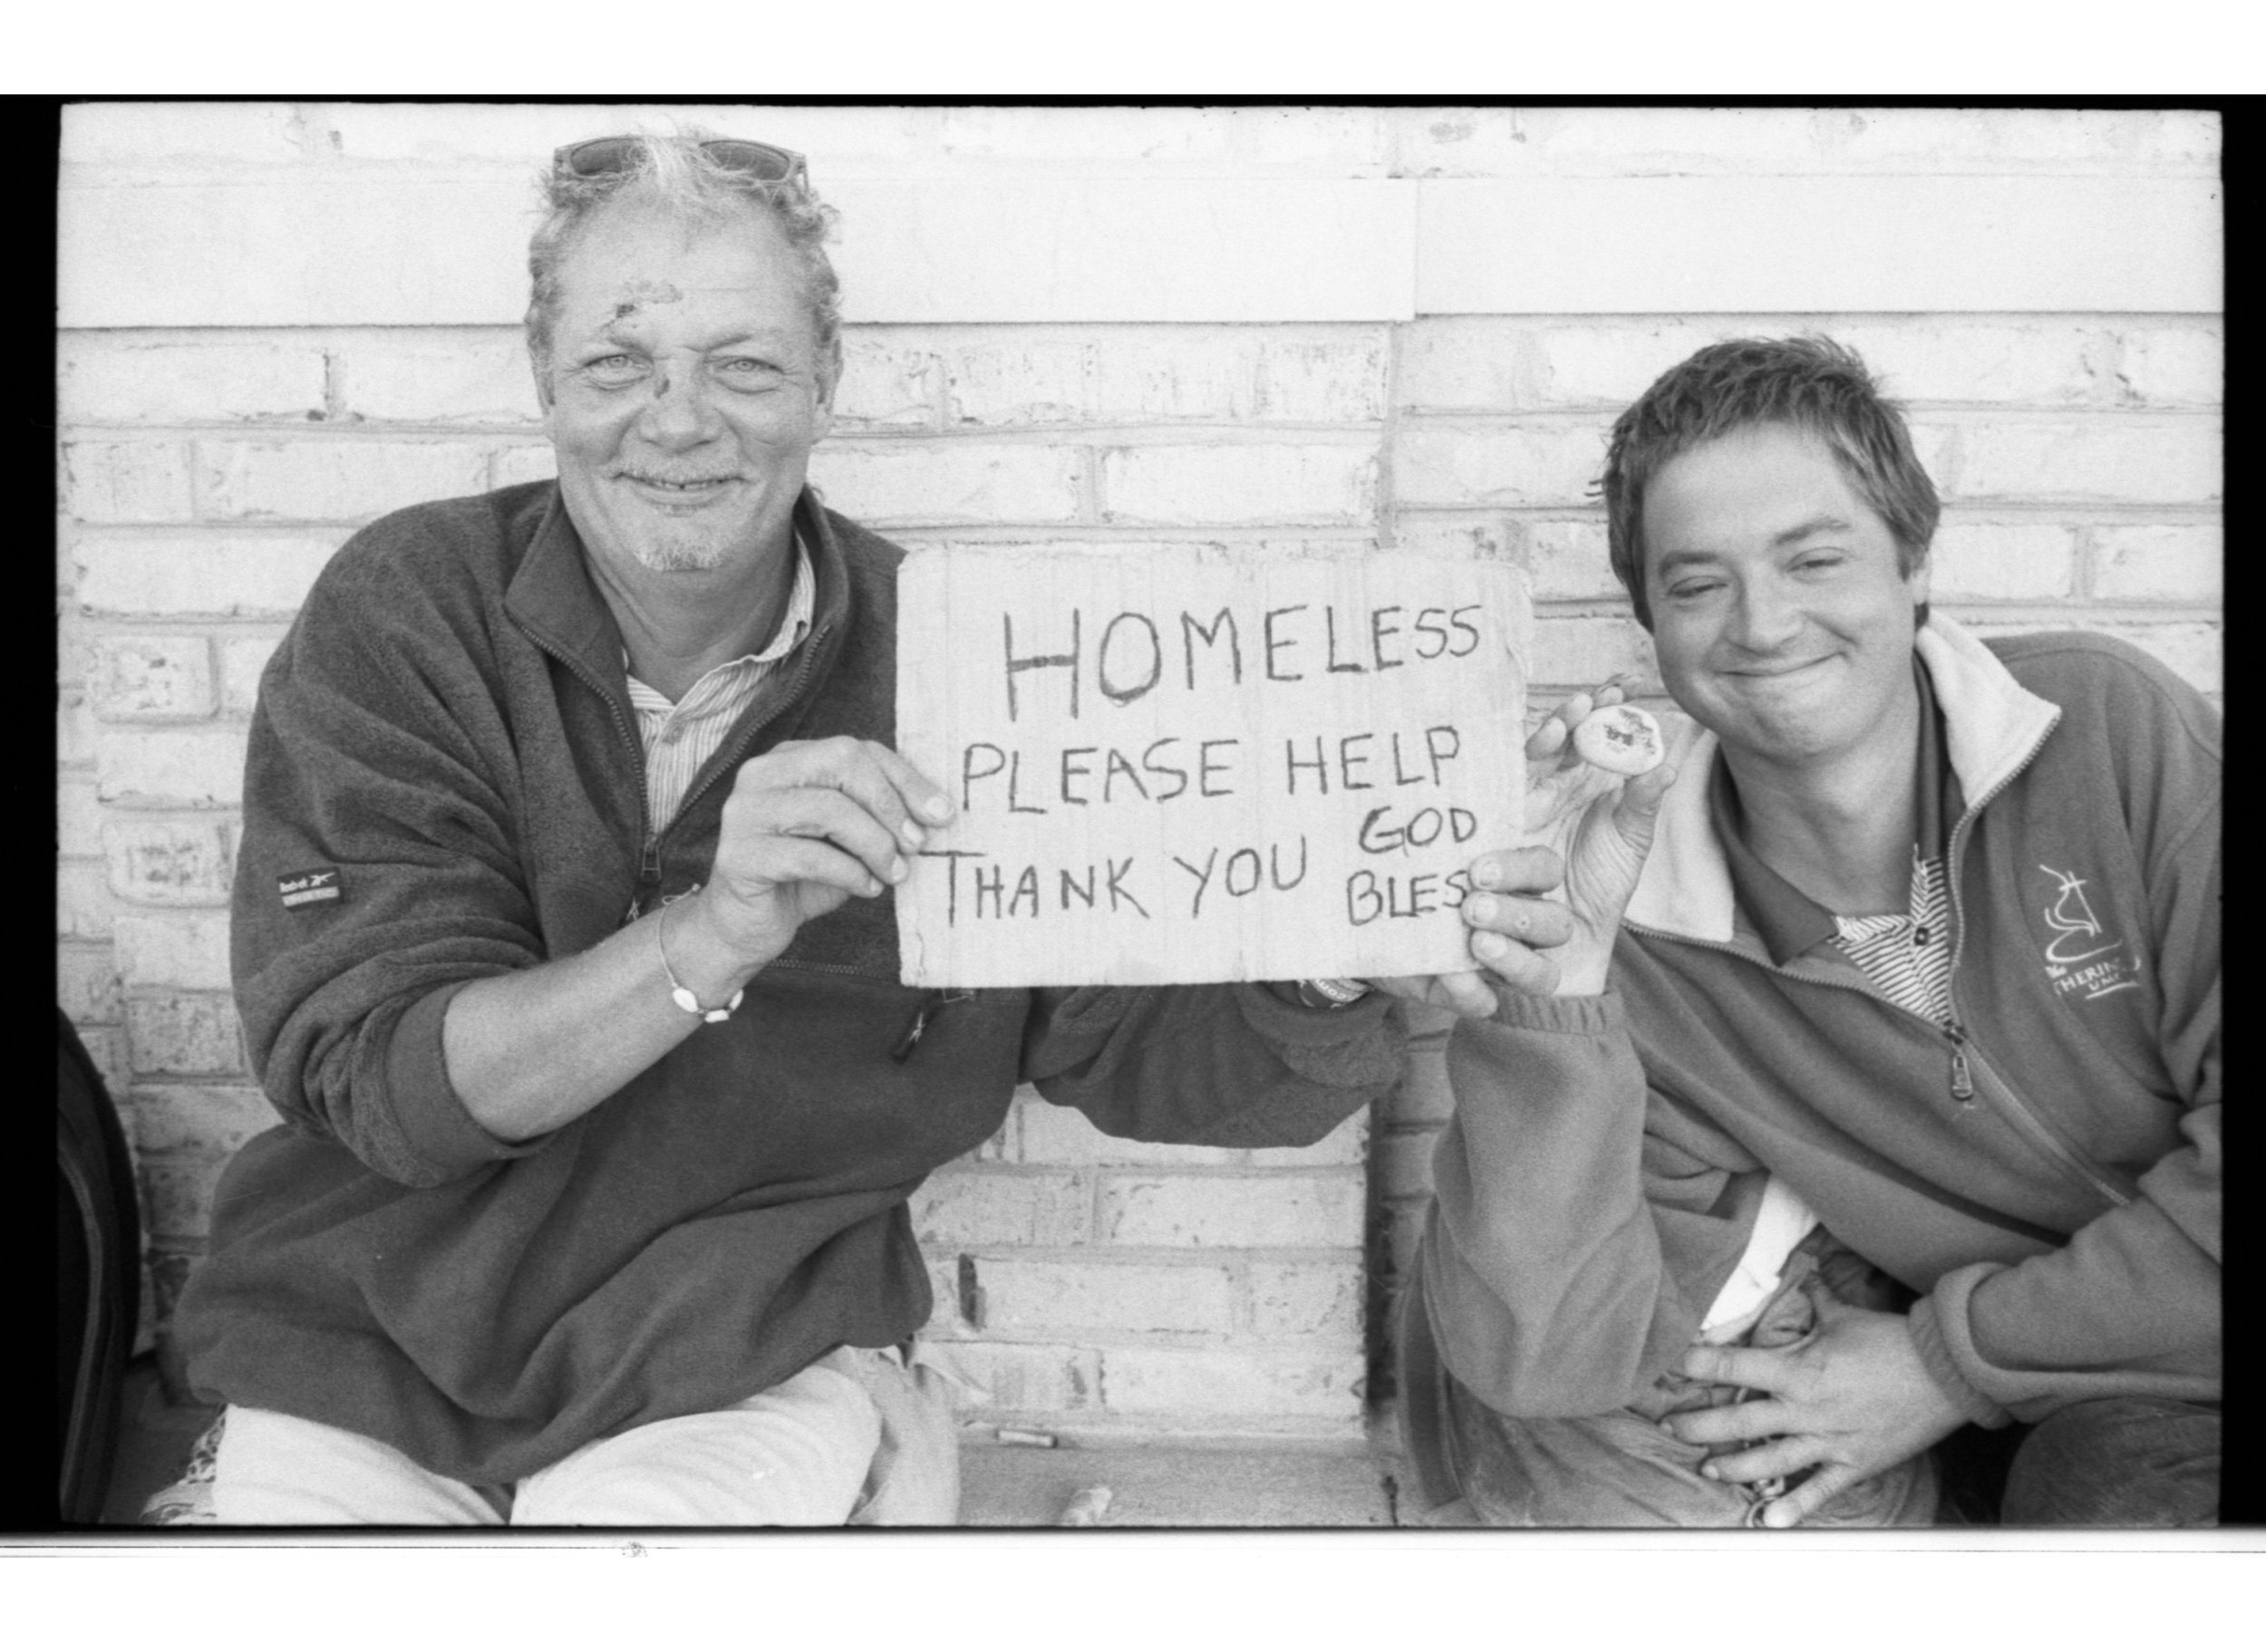 HOMELESS
PLEASE HELP
THANK YOU GOD
BLES
Reebok